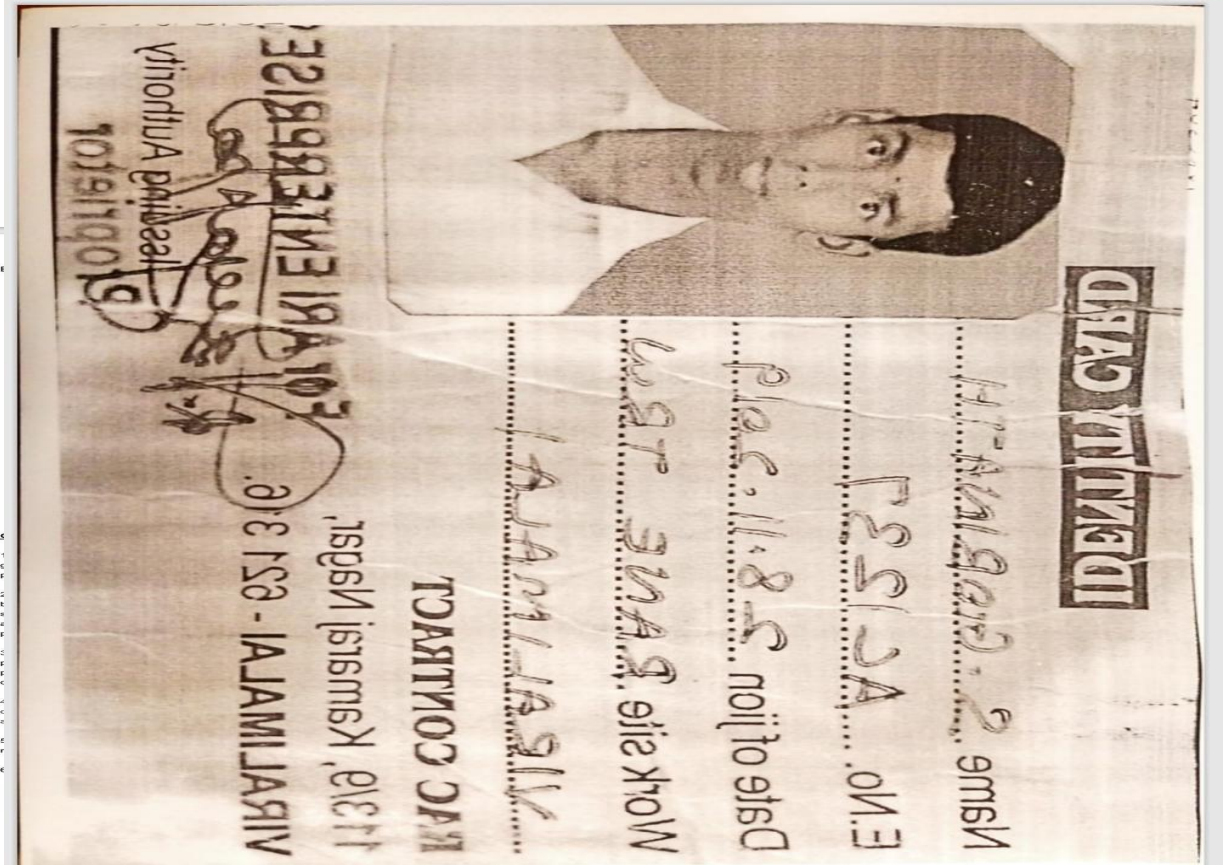 IDENTITY CARD
Name S. GOBINATH
E.No. AC1237
Date of join 28.11.2019
Work site RANE TRW
VIRALIMALAI
CONTRACT
113/9, Kamaraj Nagar,
VIRALIMALAI - 621 316.
For ARI ENTERPRISE
Issuing Authority
Proprietor